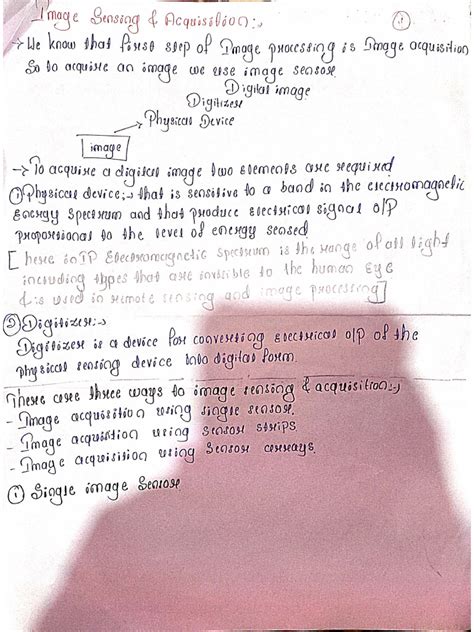 Image Sensing & Acquisition:-
①
→ We know that first step of Image processing is Image acquisition
So to acquire an image we use image sensor
Digital image
Digitizer
→ Physical Device
image
→ To acquire a digital image two elements are required
① Physical device:- that is sensitive to a band in the electromagnetic
energy spectrum and that produce electrical signal o/p
proportional to the level of energy sensed
[ here in IP Electromagnetic spectrum is the range of all light
including types that are invisible to the human eye
& is used in remote sensing and image processing]
② Digitizer:-
Digitizer is a device for converting electrical o/p of the
physical sensing device into digital form.
There are three ways to image sensing & acquisition:-
- Image acquisition using single sensor.
- Image acquisition using sensor strips.
- Image acquisition using Sensor arrays.
① Single image Sensor